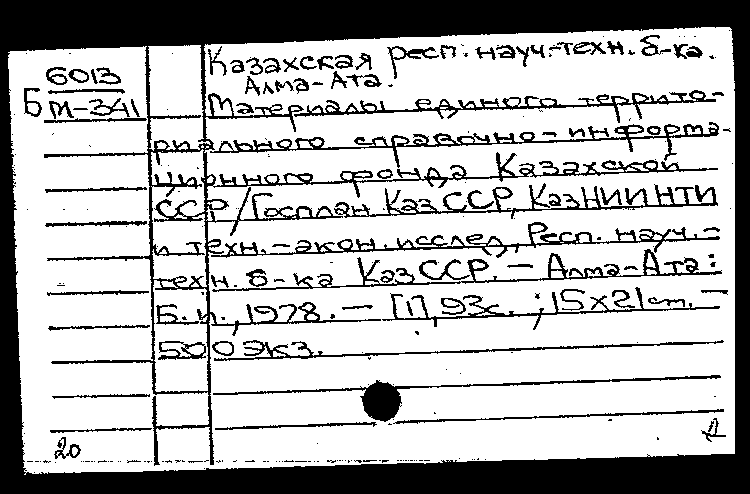 6013
Б М-341
Казахская респ. науч.-техн. б-ка.
Алма-Ата.
Материалы единого террито-
риального справочно-информа-
ционного фонда Казахской
ССР/Госплан КазССР, КазНИИНТИ
и техн.-экон. исслед, Респ. науч.-
техн. б-ка КазССР. — Алма-Ата:
Б.и., 1978. — [1], 93с. ; 15х21 cm. —
500 экз.
20